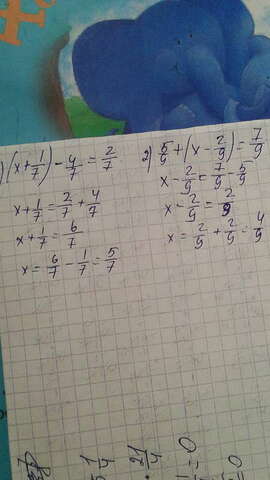 1) (x + 1/7) - 4/7 = 2/7
x + 1/7 = 2/7 + 4/7
x + 1/7 = 6/7
x = 6/7 - 1/7 = 5/7
2) 5/9 + (x - 2/9) = 7/9
x - 2/9 = 7/9 - 5/9
x - 2/9 = 2/9
x = 2/9 + 2/9 = 4/9